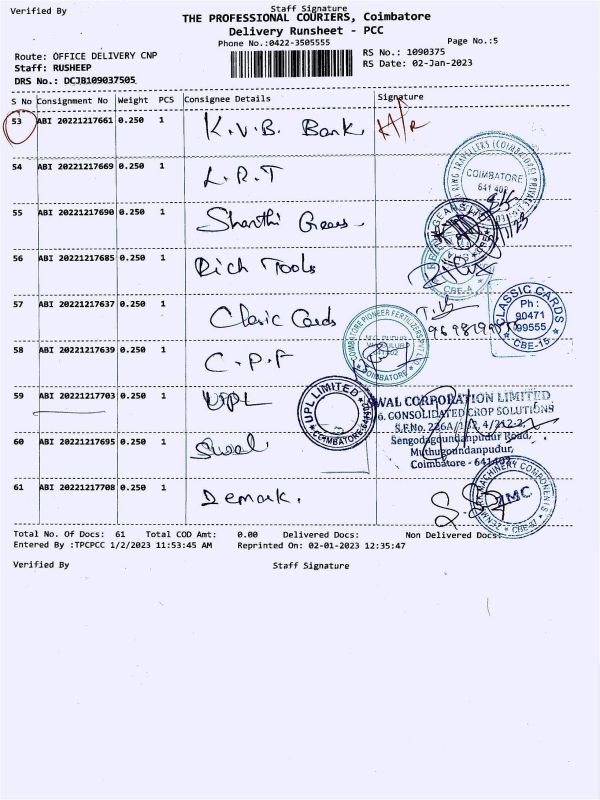 Verified By Staff Signature
THE PROFESSIONAL COURIERS, Coimbatore
Delivery Runsheet - PCC
Phone No.:0422-3505555 Page No.:5
Route: OFFICE DELIVERY CNP RS No.: 1090375
Staff: RUSHEEP RS Date: 02-Jan-2023
DRS No.: DCJB109037505
S No Consignment No Weight PCS Consignee Details Signature
53 ABI 20221217661 0.250 1 K.V.B. Bank
54 ABI 20221217669 0.250 1 L.R.T
RING TRAVELLERS (COIMBATORE) PRIVATE
COIMBATORE
641 402
55 ABI 20221217690 0.250 1 Shanthi Gears
56 ABI 20221217685 0.250 1 Rich Tools
CBE-A
57 ABI 20221217637 0.250 1 Clasic Cards
CLASSIC CARDS
Ph :
90471
99555
CBE-15
58 ABI 20221217639 0.250 1 C.P.F
COIMBATORE PIONEER FERTILIZERS
COIMBATORE
59 ABI 20221217703 0.250 1 UPL
UPL LIMITED
COIMBATORE
WAL CORPORATION LIMITED
6. CONSOLIDATED CROP SOLUTIONS
S.F.No. 226A/1/2, 4/212-2,
Sengodagoundanpudur Road,
Muthugoundanpudur,
Coimbatore - 641402
60 ABI 20221217695 0.250 1 Swal
61 ABI 20221217708 0.250 1 Demark.
MACHINERY COMPONENTS
CBE-37
Total No. Of Docs: 61 Total COD Amt: 0.00 Delivered Docs: Non Delivered Docs:
Entered By :TPCPCC 1/2/2023 11:53:45 AM Reprinted On: 02-01-2023 12:35:47
Verified By Staff Signature